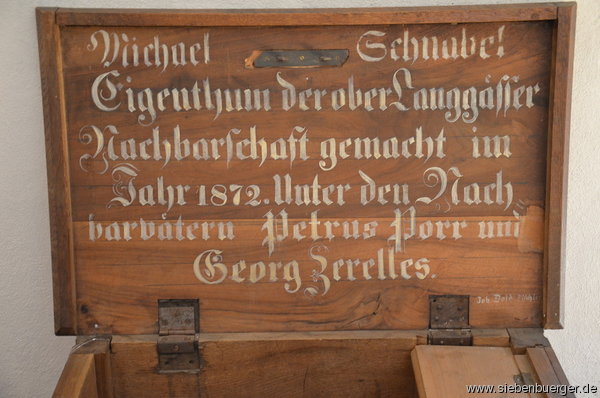 Michael Schnabel
Eigenthum der ober Langgässer
Nachbarschaft gemacht im
Jahr 1872. Unter den Nach
barvätern Petrus Porr und
Georg Zerelles.
Joh.
www.siebenbuerger.de